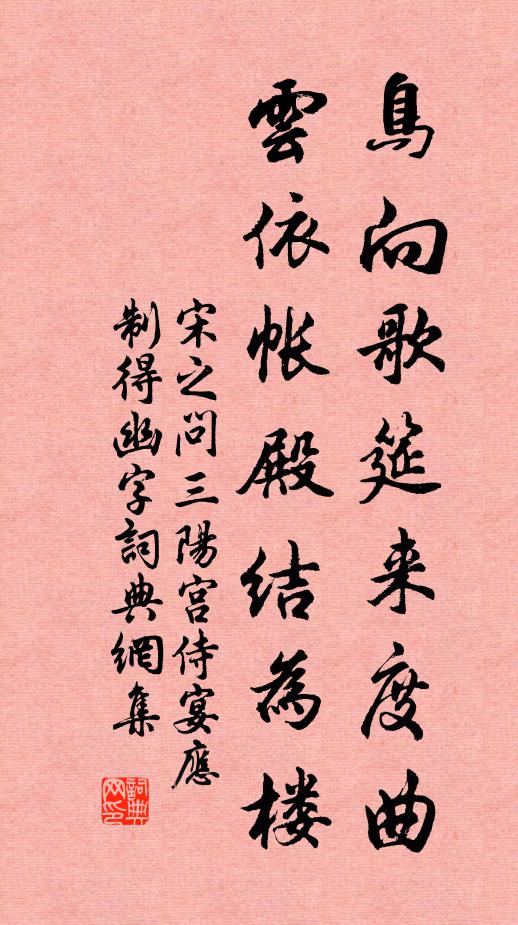 鳥向歌筵来度曲
雲依帐殿結為楼
宋之问三陽宫侍宴應
制得幽字詞典網集
詞典
网印